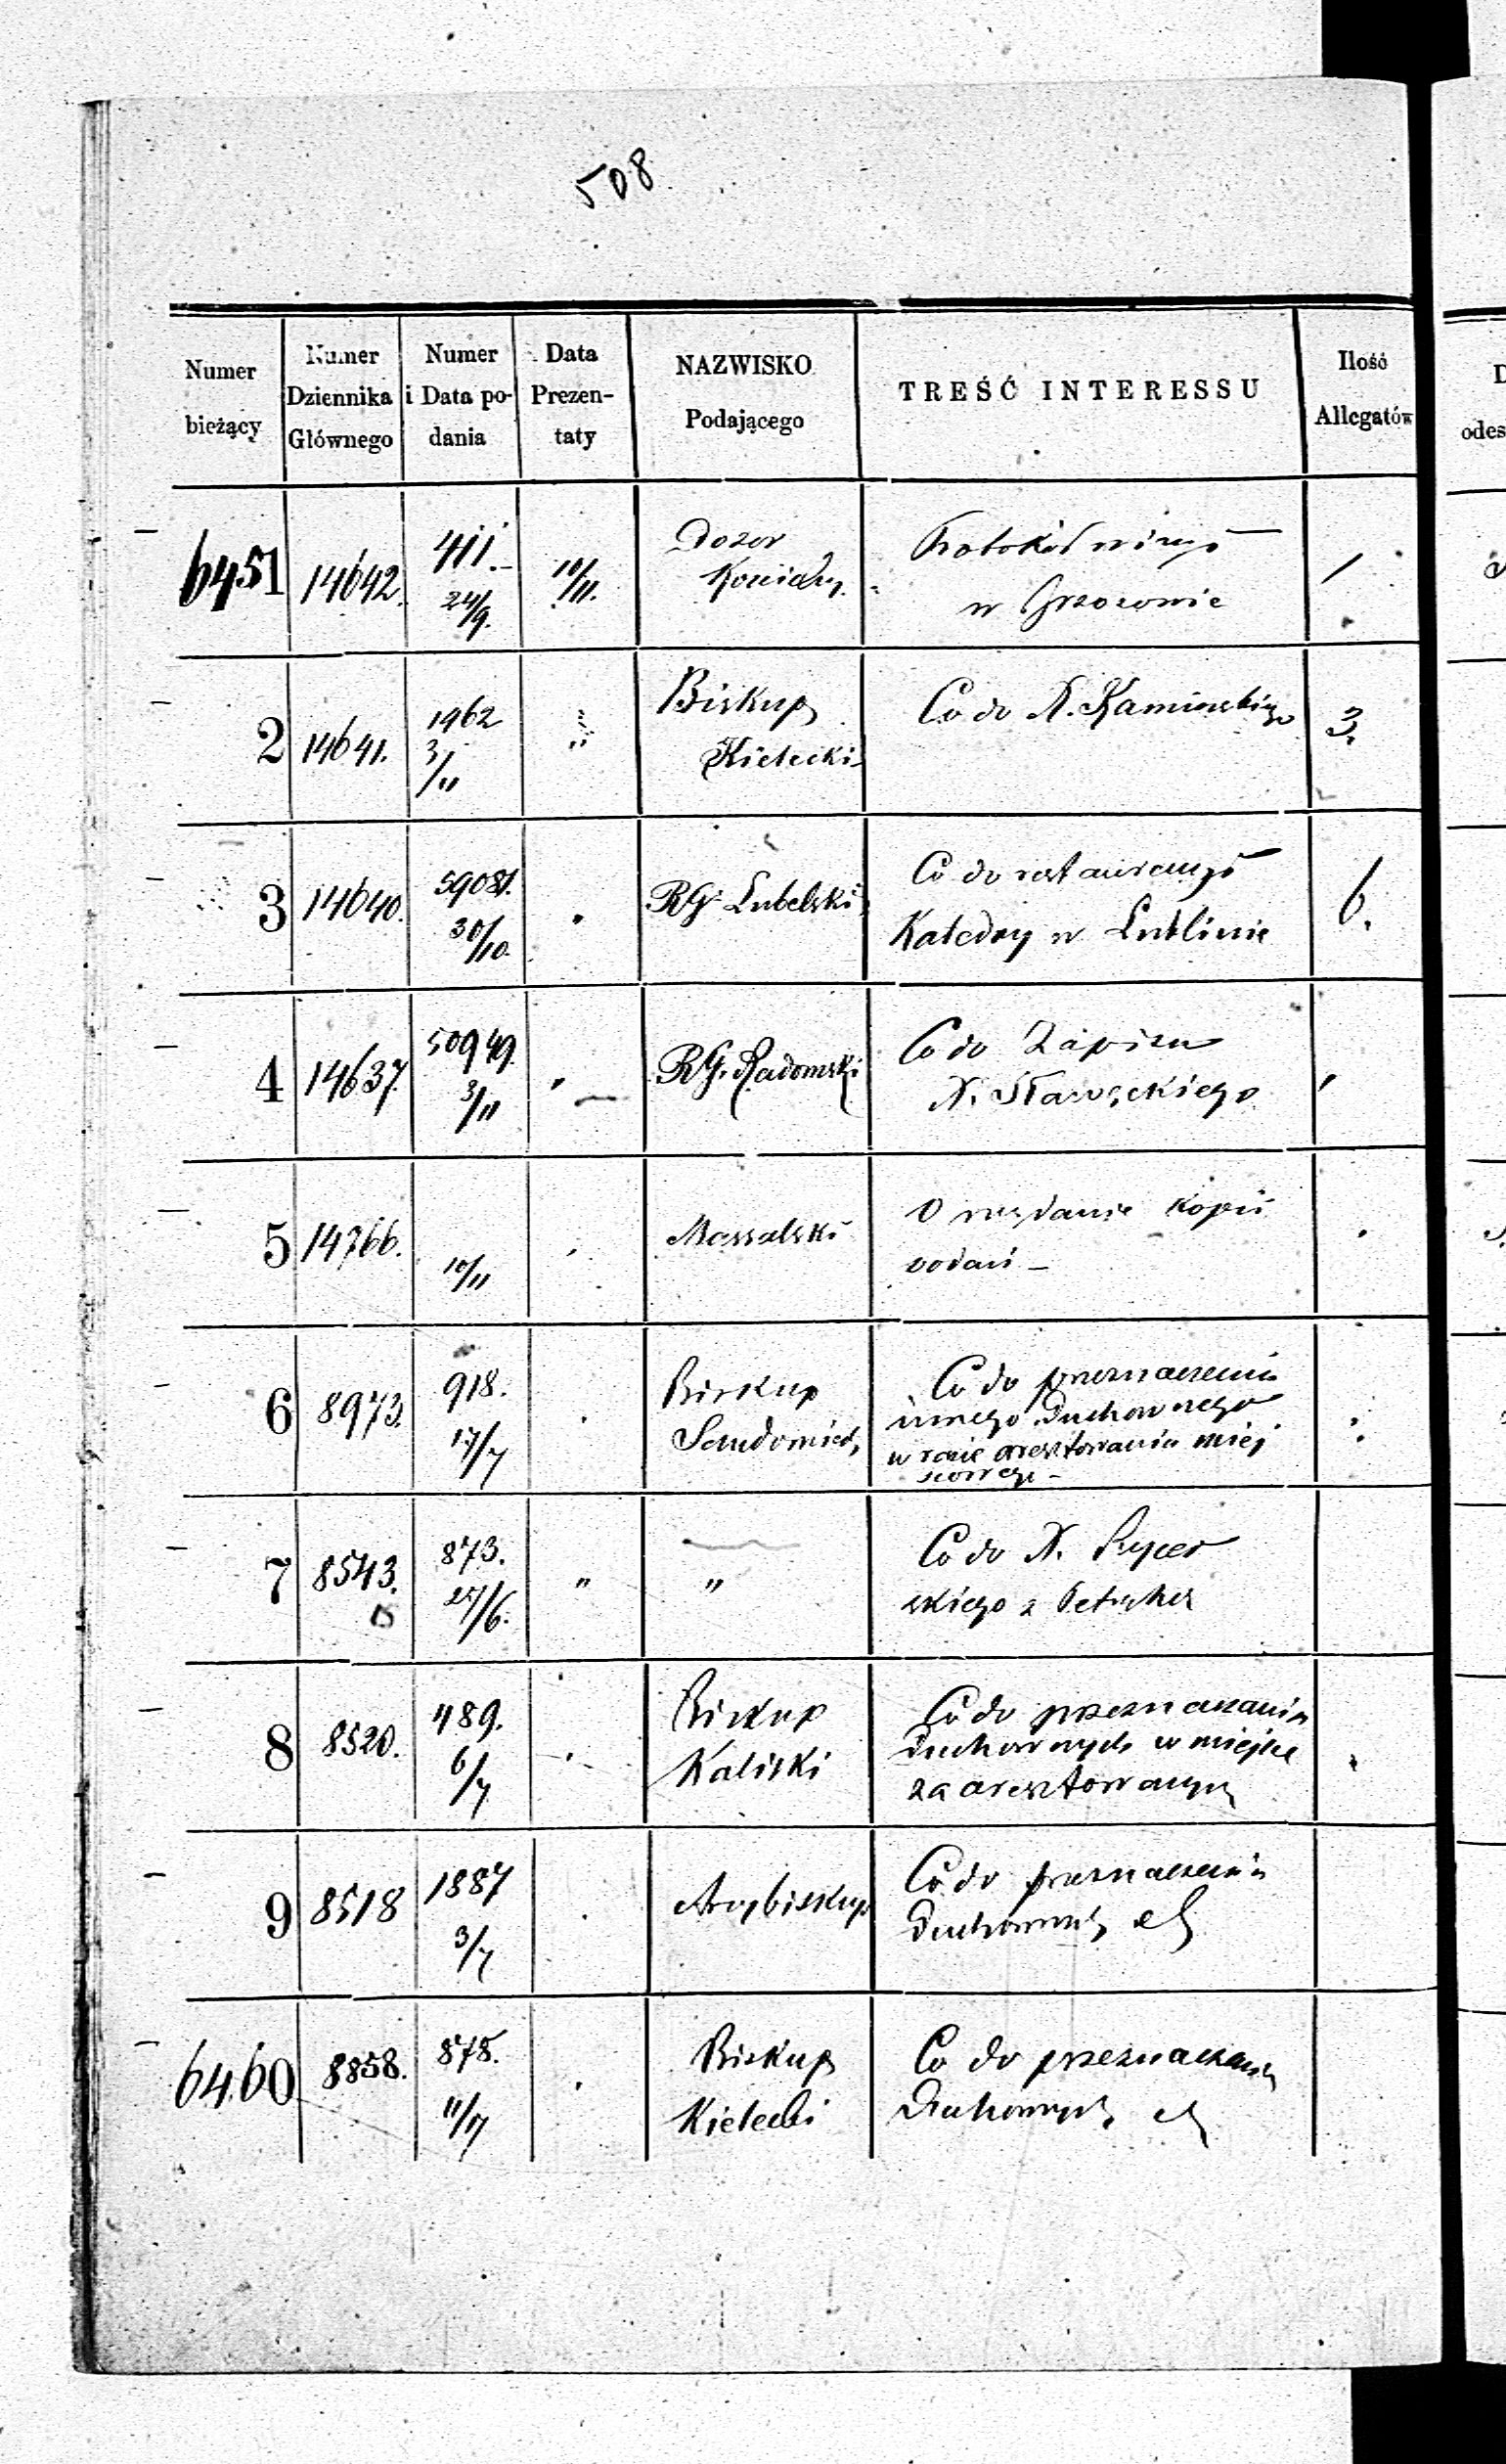 508
Numer bieżący
Numer Dziennika Głównego
Numer i Data podania
Data Prezentaty
NAZWISKO Podającego
TREŚĆ INTERESSU
Ilość Allegatów
6451 14642. 411. 24/9. 10/11. Dozor
Protokół
w
2 14641. 1962 3/11 Biskup Kielecki
Co do X. Kamińskiego 3.
3 14640. 59081. 30/10. RG Lubelski
Co do restauracyi
Katedry w Lublinie 6.
4 14637. 50949. 3/11 RG. Radomski
Co do Zapisu
X. Sławęckiego
5 14766. 10/11 Massalski
O wydanie kopii
podań
6 8973. 918. 17/7 Biskup
Sandomier,
Co do przeznaczenia
innego Duchownego
w razie aresztowania miej
scowego
7 8543. 873. 27/6. " "
Co do X. Rycer
skiego z
8 8520. 489. 6/7 Biskup
Kaliski
Co do przeznaczenia
Duchownych w miejsce
zaaresztowanych
9 8518 1887 3/7 Arcybiskup
Co do przeznaczenia
Duchownych
6460 8858. 878. 11/7 Biskup
Kielecki
Co do przeznaczenia
Duchownych